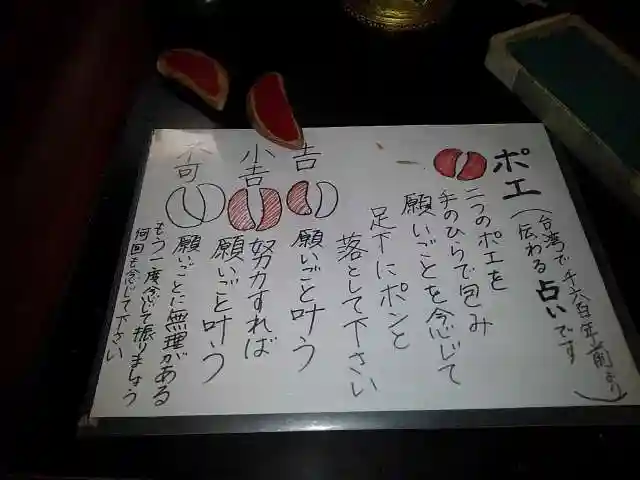 ポエ
(台湾で千六百年前より
伝わる占いです)
二つのポエを
手のひらで包み
願いごとを念じて
足下にポンと
落として下さい
吉
願いごと叶う
小吉
努力すれば
願いごと叶う
不可
願いごとに無理がある
もう一度念じて振りましょう
何回も念じて下さい